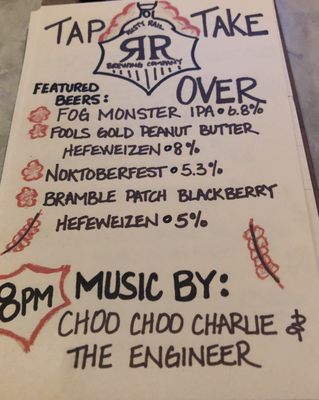 TAP TAKE
RUSTY RAIL
RR
BREWING COMPANY
OVER
FEATURED
BEERS:
FOG MONSTER IPA • 6.8%
FOOLS GOLD PEANUT BUTTER
HEFEWEIZEN • 8%
NOKTOBERFEST • 5.3%
BRAMBLE PATCH BLACKBERRY
HEFEWEIZEN • 5%
8PM MUSIC BY:
CHOO CHOO CHARLIE &
THE ENGINEER